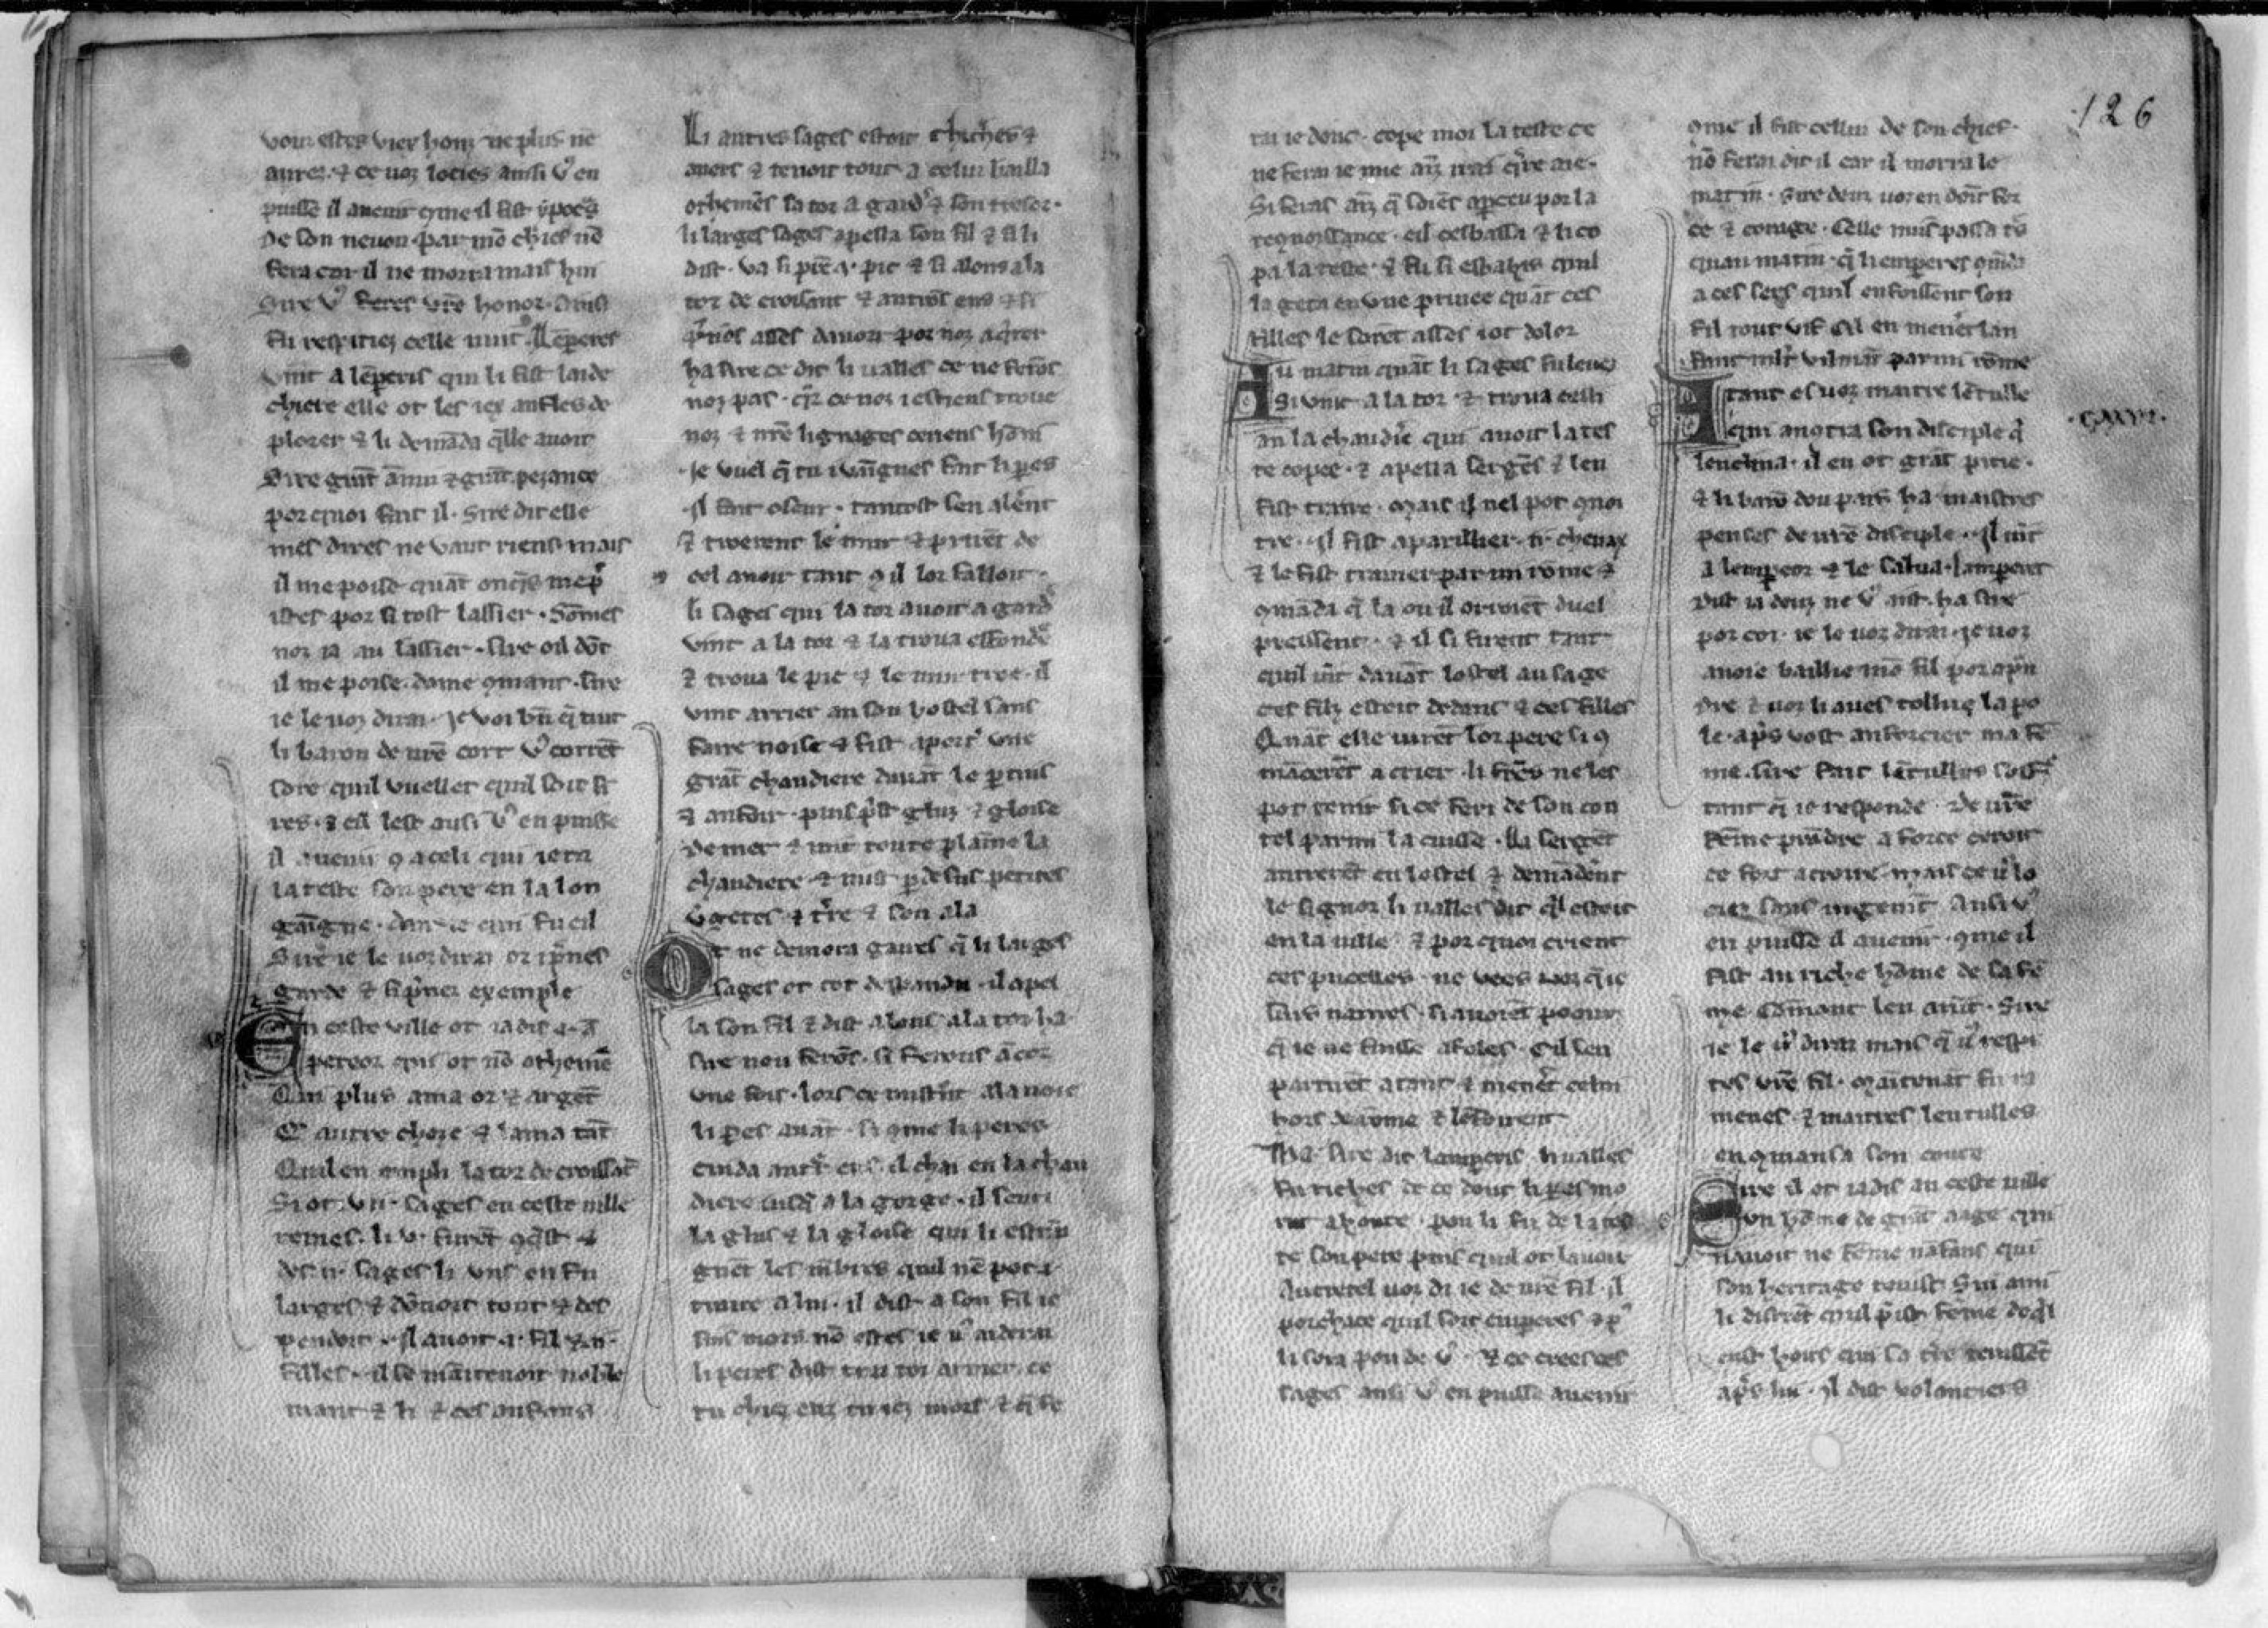 voir estes vier hom ne plus ne
aurez ⁊ ce uoz locies ausi v̾ en
puisse il auenir ꝯme il fist ypocͣs
de son neuou par mō chief nō
fera car il ne morra mais hui
Sire v̾ feres vr̄e honor Ainsi
fu respitiez celle nuit Lēperes
vint a lēperis qui li fist laide
chiere elle ot les iex anfles de
plorer ⁊ li demāda q̄lle auoit
Sire grāt ānui ⁊ grāt pezance
por quoi fait il. Sire dit elle
mes dires ne vaut riens mais
il me poise quāt onq̄s me
istes por si tost laissier. Sōmes
nos ia au laissier. sire oil dōt
il me poise. dame ꝯmant. sire
ie le uoz dirai. Je voi bn̄ q̄ tuit
li baron de ur̄e cort
core quil vuellet quil soit si
res. ⁊ cil lest ausi v̾ en puisse
il auenir ꝯ a celi qui ieta
la teste son pere en la lon
gaigne. dame qui fu cil
Sire ie le uoz dirai or ip̄nes
garde ⁊ si p̄nez exemple
En ceste ville ot iadis .i. ā
pereor qui ot nō othemē
Qui plus ama or ⁊ argēt
Q̄ autre choze ⁊ lama tāt
Quil en empli la tor de croissāt
Si ot .vii. sages en ceste uille
remes. li .v. furēt
des .ii. sages li vns en fu
larges ⁊ dōnoit tout ⁊ des
pendoit. Il auoit .i. fil ⁊ .ii.
filles. il se māitenoit noble
mant ⁊ li ⁊ ces anfans
Li autres sages estoit chiches ⁊
auers ⁊ tenoit tout a celui bailla
othemēs sa tor a gard̾ ⁊ son tresor.
li larges sages apella son fil ⁊ si li
dist. va si prē .i. pic ⁊ si alons a la
tor de croisant ⁊ antrōs ens ⁊ si
p̄nōs asses dauoir por noz aq̄ter
ha sire ce dit li valles ce ne ferōs
noz pas. q̄r ce noz i estiens troue
noz ⁊ nr̄e lignages ceriens honi
Je vuel q̄ tu i vaignes fait li peres
Il fait oseur. tantost sen alerēt
⁊ troerent le mur ⁊ pruēt de
cel auoir tant ꝯ il lor fallоit.
li sages qui la tor auoit a gard̾
vint a la tor ⁊ la troua effondē
⁊ troua le pic ⁊ le mur troe. il
vint arrier an son hostel sans
faire noise ⁊ fist aport̾ vne
grāt chaudiere dauāt le ꝑtuis
⁊ anfoir. puis p̄st gluz ⁊ gloise
de mer ⁊ mit toute plainne la
chaudiere ⁊ mist ꝑ desus petites
v̾getes ⁊ t̄re ⁊ son ala
Ot ne demora gaires q̄ li larges
sages ot tot despandu. il apel
la son fil ⁊ dist alons a la tor ha
sire nou ferōs. si ferons ācor
vne fois. lors ce mistrēt a la uoie
li ꝑes auāt. si ꝯme li peres
cuida antr̾ ens. il chai en la chau
diere iusq̄ a la gorge. il senti
la glus ⁊ la gloise qui li estrain
gnēt les mēbres quil nē pot .i.
traire a lui. il dist a son fil ie
suis mors. nō estes ie v̾ aiderai
li peres dist trai toi arrier. ce
tu chiez enz tu iez mors ⁊ q̄ fe
rai ie donc. cope moi la teste ce
ne ferai ie mie
Si feras āz q̄ soiēs aꝑceu por la
requoissance. cil cesbassa ⁊ li co
pa la teste. ⁊ fu si esbahis quil
la geta en vne priuee quāt ces
filles le sorēt asses iot dolor
Au matin quāt li sages fu leuez
si vint a la tor ⁊ troua cesti
an la chaudīe qui auoit la tes
te copee. ⁊ apella sergēs ⁊ len
fist traire. mais il nel pot quoi
tre. il fist aparillier .ii. chenax
⁊ le fist trainer par mi rōme ⁊
ꝯmāda q̄ la ou il orroiēt duel
preissent. ⁊ il si firent tant
quil uīt dauāt lostel au sage
ces filz estoit dedans ⁊ ces filles
Quāt elle uirēt lor pere si ꝯ
mācerēt a crier. li frēs ne les
pot tenir si ce feri de son cou
tel parmi la cuisse. Li sergēt
antrerēt en lostel ⁊ demādērt
le signor li valles dit q̄l estoit
en la uille ⁊ por quoi crient
ces pucelles. ne vees uoz q̄ ie
suis naures. si auoiēt poour
q̄ ie ne fusse afoles. Cil sen
partirēt atant ⁊ menerēt celui
hors de rōme ⁊ lēfoirent
Ha sire dit lamperis li ualles
fu riches de ce dont li peres mo
rut a honte. pou li fu de la tes
te son pere puis quil ot lauoir
Autretel uoz di ie de ur̄e fil. il
porchace quil soit emperes ap̄s
li sera pou de v̾. ⁊ ce crees ces
sages ausi v̾ en puisse auenir
ꝯme il fist cellui de son chief.
nō ferai dit il car il morra le
matin. Sire dex uoz en doīt for
ce ⁊ corage. Celle nuit passa ius
quau matin. q̄ li emperes ꝯmāda
a ces sers quil enfoissent son
fil tout vif Cil en menerēt lan
fant mlt̄ vilmāt parmi rōme
Atant es uoz maitre lētulle
qui anotra son disciple q̄
lenclina. il en ot grāt pitie.
⁊ li barō dou pais ha maistres
penses de ur̄e disciple. Il uīt
a lempeor ⁊ le salua. lamperes
dist ia dex ne v̾ aist. ha sire
por coi. ie le uoz dirai. ie uoz
auoie baillie mō fil por apr̄n
dre ⁊ uoz li aues tollue la po
le. ap̄s vost anforcier ma fē
me. sire fait lētulles
tant q̄ ie responde. De ur̄e
fēme prādre a force ceroit
ce fort a croire. mais ce u̾ lo
ciez sans iugemēt Ausi v̾
en puisse il auenir. ꝯme il
fist au riche hōme de sa fē
me. Cōmant len auīt. Sire
ie le u̾ dirai mais q̄ u̾ respi
tes vr̄e fil. Maītenāt fu ra
menes. ⁊ maitres lentulles
en ꝯmansa son conte
Sire il ot iadis an ceste uille
vn hōme de grāt aage qui
nauoit ne fēme nāfans qui
son heritage tenist. Sui ami
li distrēt quil p̄ist feme deq̄l
eust hoirs qui sa t̄re tenissēt
ap̄s lui. Il dist volantiers
126